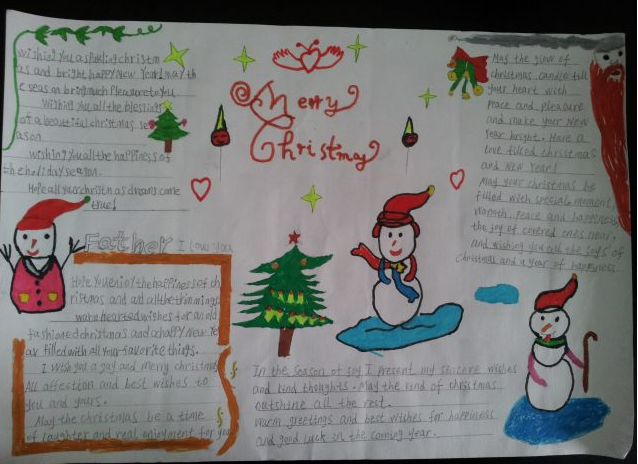 wishing you a spkling christm
as and bright happy New Year! may th
e season bring much Pleasure to you
Wishing you all the blessings
of a beautiful christmas se
ason.
wishing you all the happiness of
the holiday season.
Hope all your christmas dreams come
true!
Merry
Christmas
May the glow of
christmas candle fill
your heart with
Peace and pleasure
and make your New
Year bright. Have a
love filled christmas
and New Year!
May your christmas be
filled with special moment,
warmth, peace and happiness,
the joy of covered ones near,
and wishing you all the joys of
Christmas and a year of happiness.
Father I love you
Hope you enjoy the happiness of ch
ristmas and all the trimmings
warm hearted wishes for an old
fashioned christmas and a happy New Ye
ar filled with all your favorite things.
I wish you a gay and merry christmas
All affection and best wishes to
you and yours.
May the christmas be a time
of laughter and real enjoyment for you
In the season of joy I present my sincere wishes
and kind thoughts. May the kind of christmas
outshine all the rest.
warm greetings and best wishes for happiness
and good luck in the coming year.